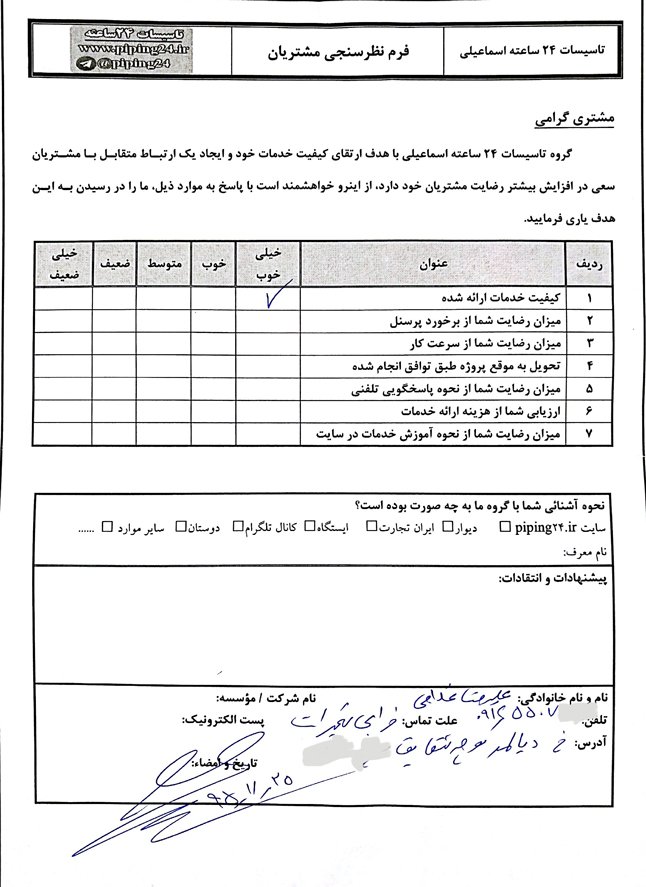 تاسیسات ۲۴ ساعته اسماعیلی
فرم نظرسنجی مشتریان
تاسیسات ۲۴ساعته
www.piping24.ir
@piping24
مشتری گرامی
گروه تاسیسات ۲۴ ساعته اسماعیلی با هدف ارتقای کیفیت خدمات خود و ایجاد یک ارتباط متقابل با مشتریان
سعی در افزایش بیشتر رضایت مشتریان خود دارد، از اینرو خواهشمند است با پاسخ به موارد ذیل، ما را در رسیدن به این
هدف یاری فرمایید.
ردیف عنوان خیلی خوب خوب متوسط ضعیف خیلی ضعیف
۱ کیفیت خدمات ارائه شده ✓
۲ میزان رضایت شما از برخورد پرسنل
۳ میزان رضایت شما از سرعت کار
۴ تحویل به موقع پروژه طبق توافق انجام شده
۵ میزان رضایت شما از نحوه پاسخگویی تلفنی
۶ ارزیابی شما از هزینه ارائه خدمات
۷ میزان رضایت شما از نحوه آموزش خدمات در سایت
نحوه آشنائی شما با گروه ما به چه صورت بوده است؟
سایت piping۲۴.ir □ دیوار□ ایران تجارت□ ایستگاه□ کانال تلگرام□ دوستان□ سایر موارد □ ......
نام معرف:
پیشنهادات و انتقادات:
نام و نام خانوادگی: علیرضا نام شرکت / مؤسسه:
تلفن: ۰۹۱۲۵۵۰۷ علت تماس: خرابی پست الکترونیک:
آدرس: خ
تاریخ و امضاء:
۹۸/۱۱/۲۵